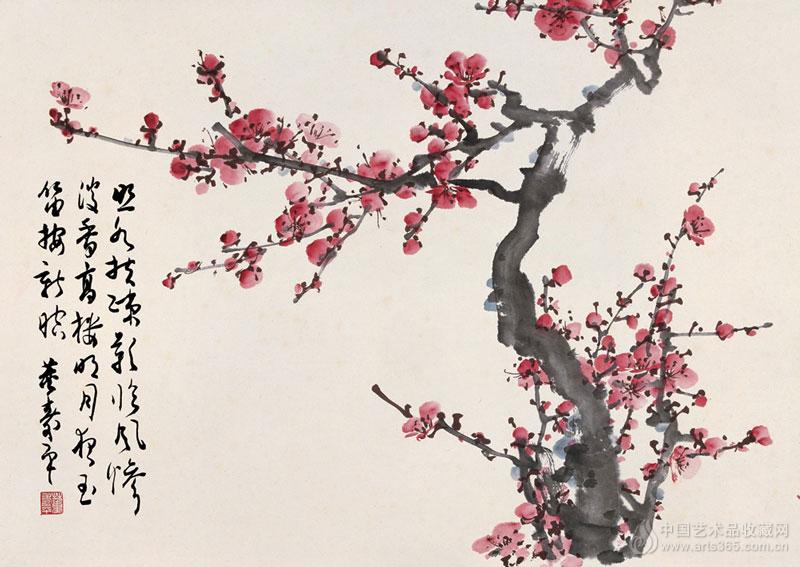 照水扶疎影临风惨
淡香高楼明月夜玉
笛按新腔 董寿平
中国艺术品收藏网
www.arts365.com.cn